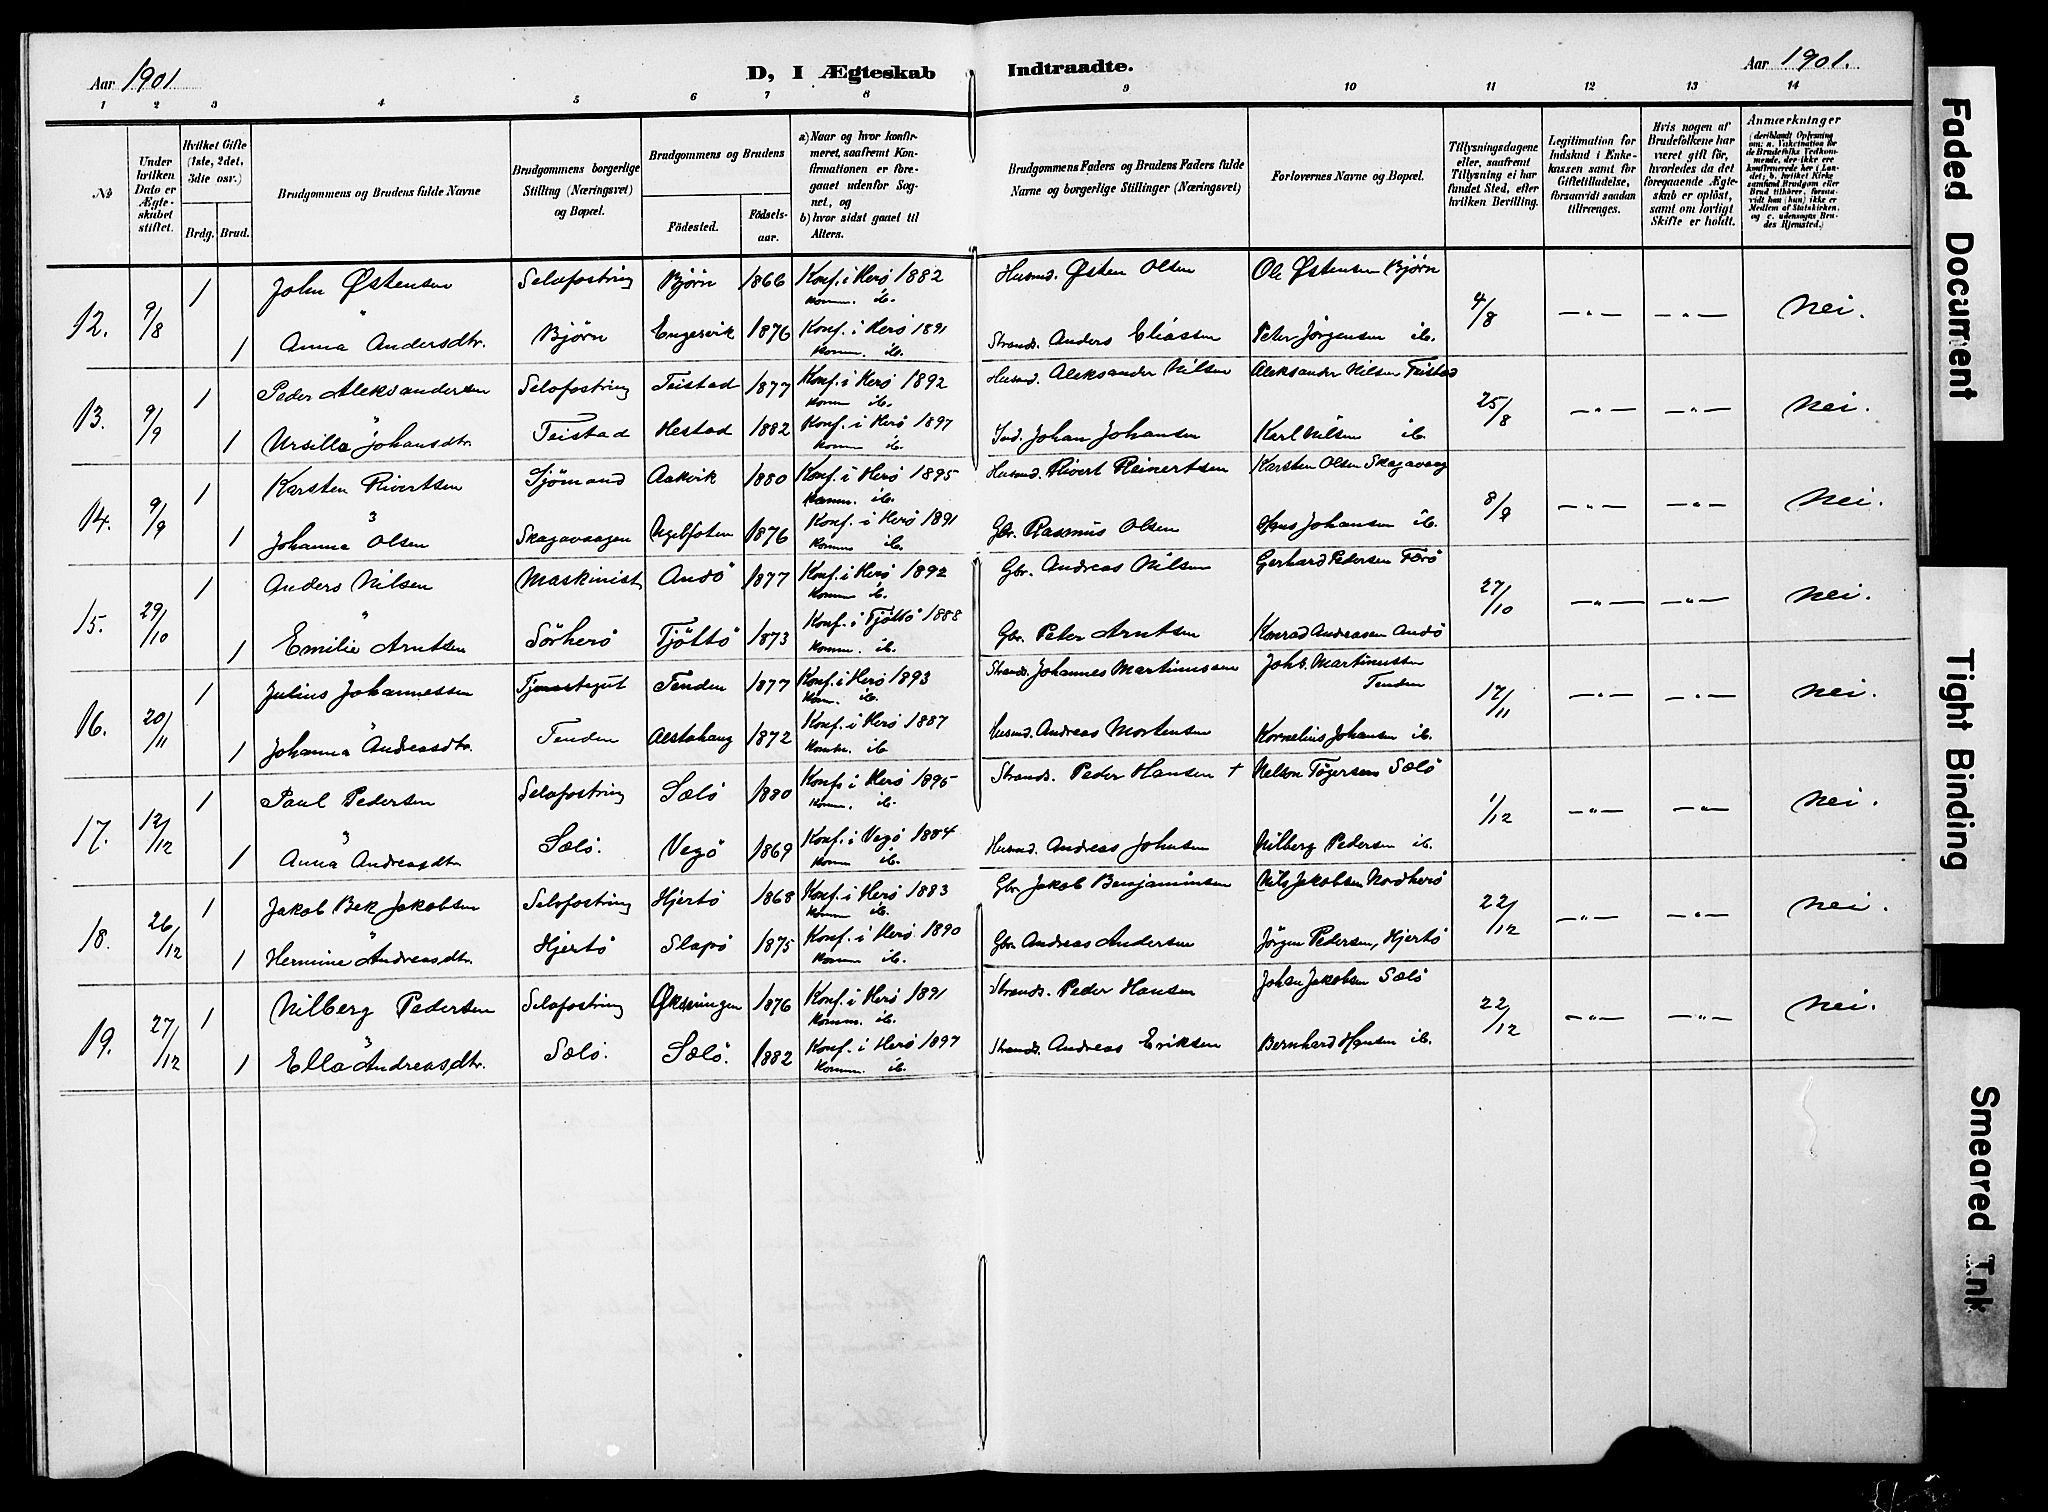 Aar 1901
D, I Ægteskab Indtraadte.
Aar 1901.
1 2 3 4 5 6 7 8 9 10 11 12 13 14
No
Under hvilken Dato er Ægteskabet stiftet.
Hvilket Gifte (1ste, 2det, 3die osv.)
Brdg. Brud.
Brudgommens og Brudens fulde Navne
Brudgommens borgerlige Stilling (Næringsvei) og Bopæl.
Brudgommens og Brudens
Födested. Födselsaar.
a) Naar og hvor konfirmeret, saafremt Konfirmationen er foregaaet udenfor Sognet, og
b) hvor sidst gaaet til Alters.
Brudgommens Faders og Brudens Faders fulde Navne og borgerlige Stillinger (Næringsvei)
Forlovernes Navne og Bopæl.
Tillysningsdagene eller, saafremt Tillysning ei har fundet Sted, efter hvilken Bevilling.
Legitimation for Indskud i Enkekassen samt for Giftetilladelse, forsaavidt saadan tiltrænges.
Hvis nogen af Brudefolkene har været gift för, hvorledes da det foregaaende Ægteskab er oplöst, samt om lovligt Skifte er holdt.
Anmærkninger
(deriblandt Oplysning om: a. Vakcination for Brudefolks Vedkommende, der ikke ere konfirmerede her i Landet; b. hvilket Kirkesamfund Brudgom eller Brud tilhörer, forsaavidt han (hun) ikke er Medlem af Statskirken, og c. udensogns Brudes Hjemsted.)
12. 9/8 1 John Østensen Selofostring Bjørn 1866 Konf. i Herø 1882 Komm. ib. Husmd. Østen Olsen Ole Østensen Bjørn 4/8 —"— —"— Nei.
1 Anna Andersdtr. Bjørn Engesvik 1876 Konf. i Herø 1891 Komm. ib. Strands. Anders Eliassen Peter Jørgensen ib.
13. 9/9 1 Peder Aleksandersen Selofostring Teistad 1877 Konf. i Herø 1892 Komm ib. Husmd. Aleksander Nilsen Aleksander Nilsen Teistad 25/8 —"— —"— Nei.
1 Ursilla Johansdtr. Teistad Hestad 1882 Konf. i Herø 1897 Komm ib. Ind. Johan Johansen Karl Nilsen ib.
14. 9/9 1 Karsten Rivertsen Sjömand Aakvik 1880 Konf. i Herø 1895 Komm. ib. Husmd. Rivert Reinertsen Karsten Olsen Skagavaag 8/9 —"— —"— Nei.
1 Johanna Olsen Skagavaagen 1876 Konf. i Herø 1891 Komm ib. Gbr. Rasmus Olsen Hans Johansen ib.
15. 29/10 1 Anders Nilsen Maskinist Andö 1877 Konf. i Herø 1892 Komm ib. Gbr. Andreas Nilsen Gerhard Pedersen Færö 27/10 —"— —"— Nei.
1 Emilie Arntsen Sörherö Tjöttö 1873 Konf. i Tjöttö 1888 Komm. ib. Gbr. Peter Arntsen Konrad Andreasen Andö
16. 20/11 1 Julius Johannessen Tjenestegut Tenden 1877 Konf. i Herø 1893 Kom. ib. Strands. Johannes Martinussen Johs. Martinussen Tenden 17/11 —"— —"— Nei.
1 Johanna Andreasdtr. Tenden Alstahaug 1872 Konf. i Herø 1887 Komm. ib. Husmd. Andreas Mortensen Kornelius Johansen ib.
17. 12/12 1 Paul Pedersen Selofostring Sælö 1880 Konf. i Herø 1895 Komm. ib. Strands. Peder Hansen + Nelson Tögersen Sælö 1/12 —"— —"— Nei.
1 Anna Andreasdtr Sælö. Vegö 1869 Konf. i Vegö 1884 Komm ib. Husmd. Andreas Johnsen Nilberg Pedersen ib.
18. 26/12 1 Jakob Bek Jakobsen Selofostring Hjertö 1868 Konf. i Herø 1883 Komm ib. Gbr. Jakob Benjaminsen Nils Jakobsen Nordherö 22/12 —"— —"— Nei.
1 Hermine Andreasdtr. Hjertö Slapö 1875 Konf. i Herø 1890 Komm ib. Gbr. Andreas Andersen Jörgen Pedersen, Hjertö
19. 27/12 1 Nilberg Pedersen Selofostring Øksningen 1876 Konf. i Herø 1891 Komm. ib. Strands. Peder Hansen Johan Jakobsen Sælö 22/12 —"— —"— Nei.
1 Ella Andreasdtr. Sælö. Sælö. 1882 Konf. i Herø 1897 Komm. ib. Strands. Andreas Eriksen Bernhard Hansen ib.
Faded Document
Tight Binding
Smeared Ink